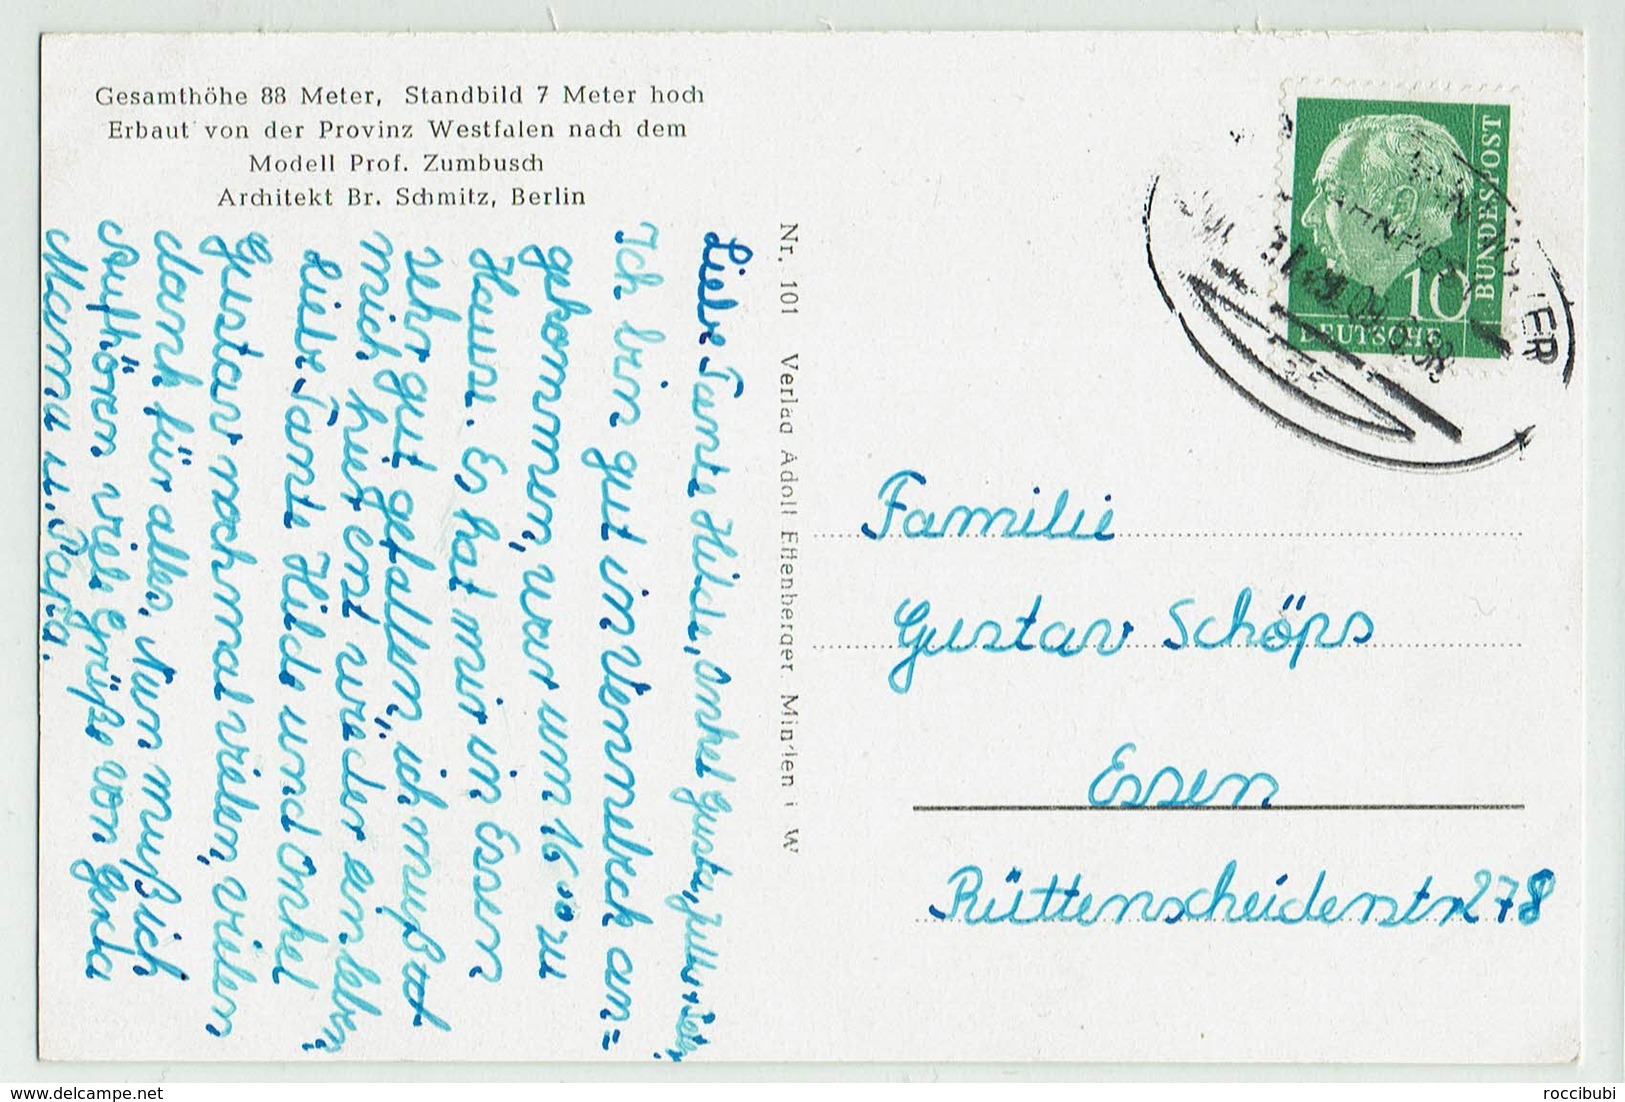 Gesamthöhe 88 Meter, Standbild 7 Meter hoch
Erbaut von der Provinz Westfalen nach dem
Modell Prof. Zumbusch
Architekt Br. Schmitz, Berlin
Liebe Tante Hilde, Onkel Gusta,
Ich bin gut in Vennebeck an=
gekommen, war um 16 00 zu
Hause. Es hat mir in Essen
sehr gut gefallen, ich mußt
mich hier erst wieder einleben,
Liebe Tante Hilde und Onkel
Gustav nochmal vielen, vielen
Dank für alles. Nun muß ich
Aufhören viele Grüße von Gerda
Mama u. Papa.
Nr. 101 Verlag Adolf Effenberger. Minden i W
DEUTSCHE
BUNDESPOST
10
Familie
Gustav Schöps
Essen
Rüttenscheiderstr 278
roccibubi